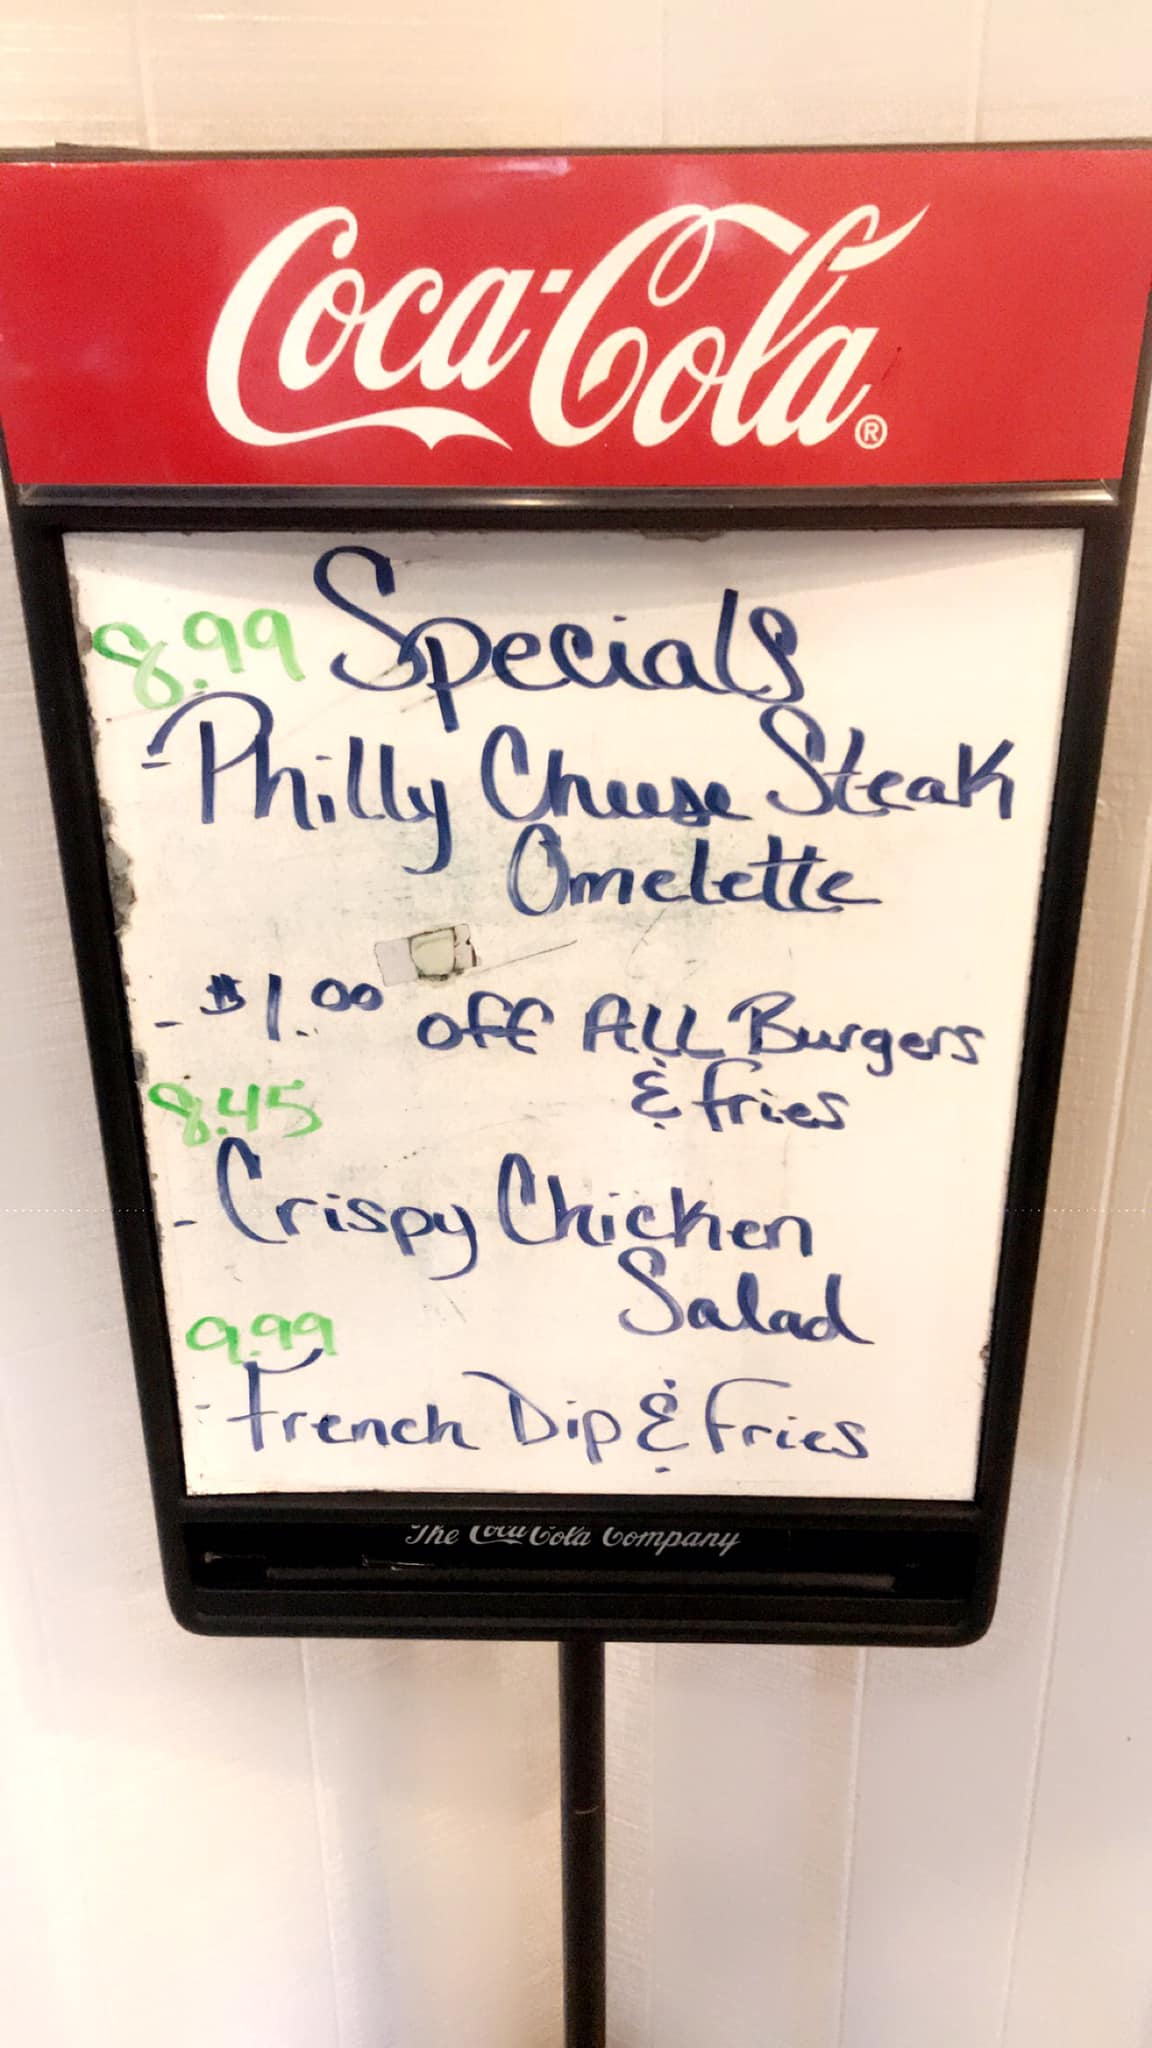 Coca-Cola®
8.99 Specials
-Philly Cheese Steak
Omelette
- $1.00 off ALL Burgers
& fries
8.45
- Crispy Chicken
Salad
9.99
- French Dip & Fries
The Coca-Cola Company